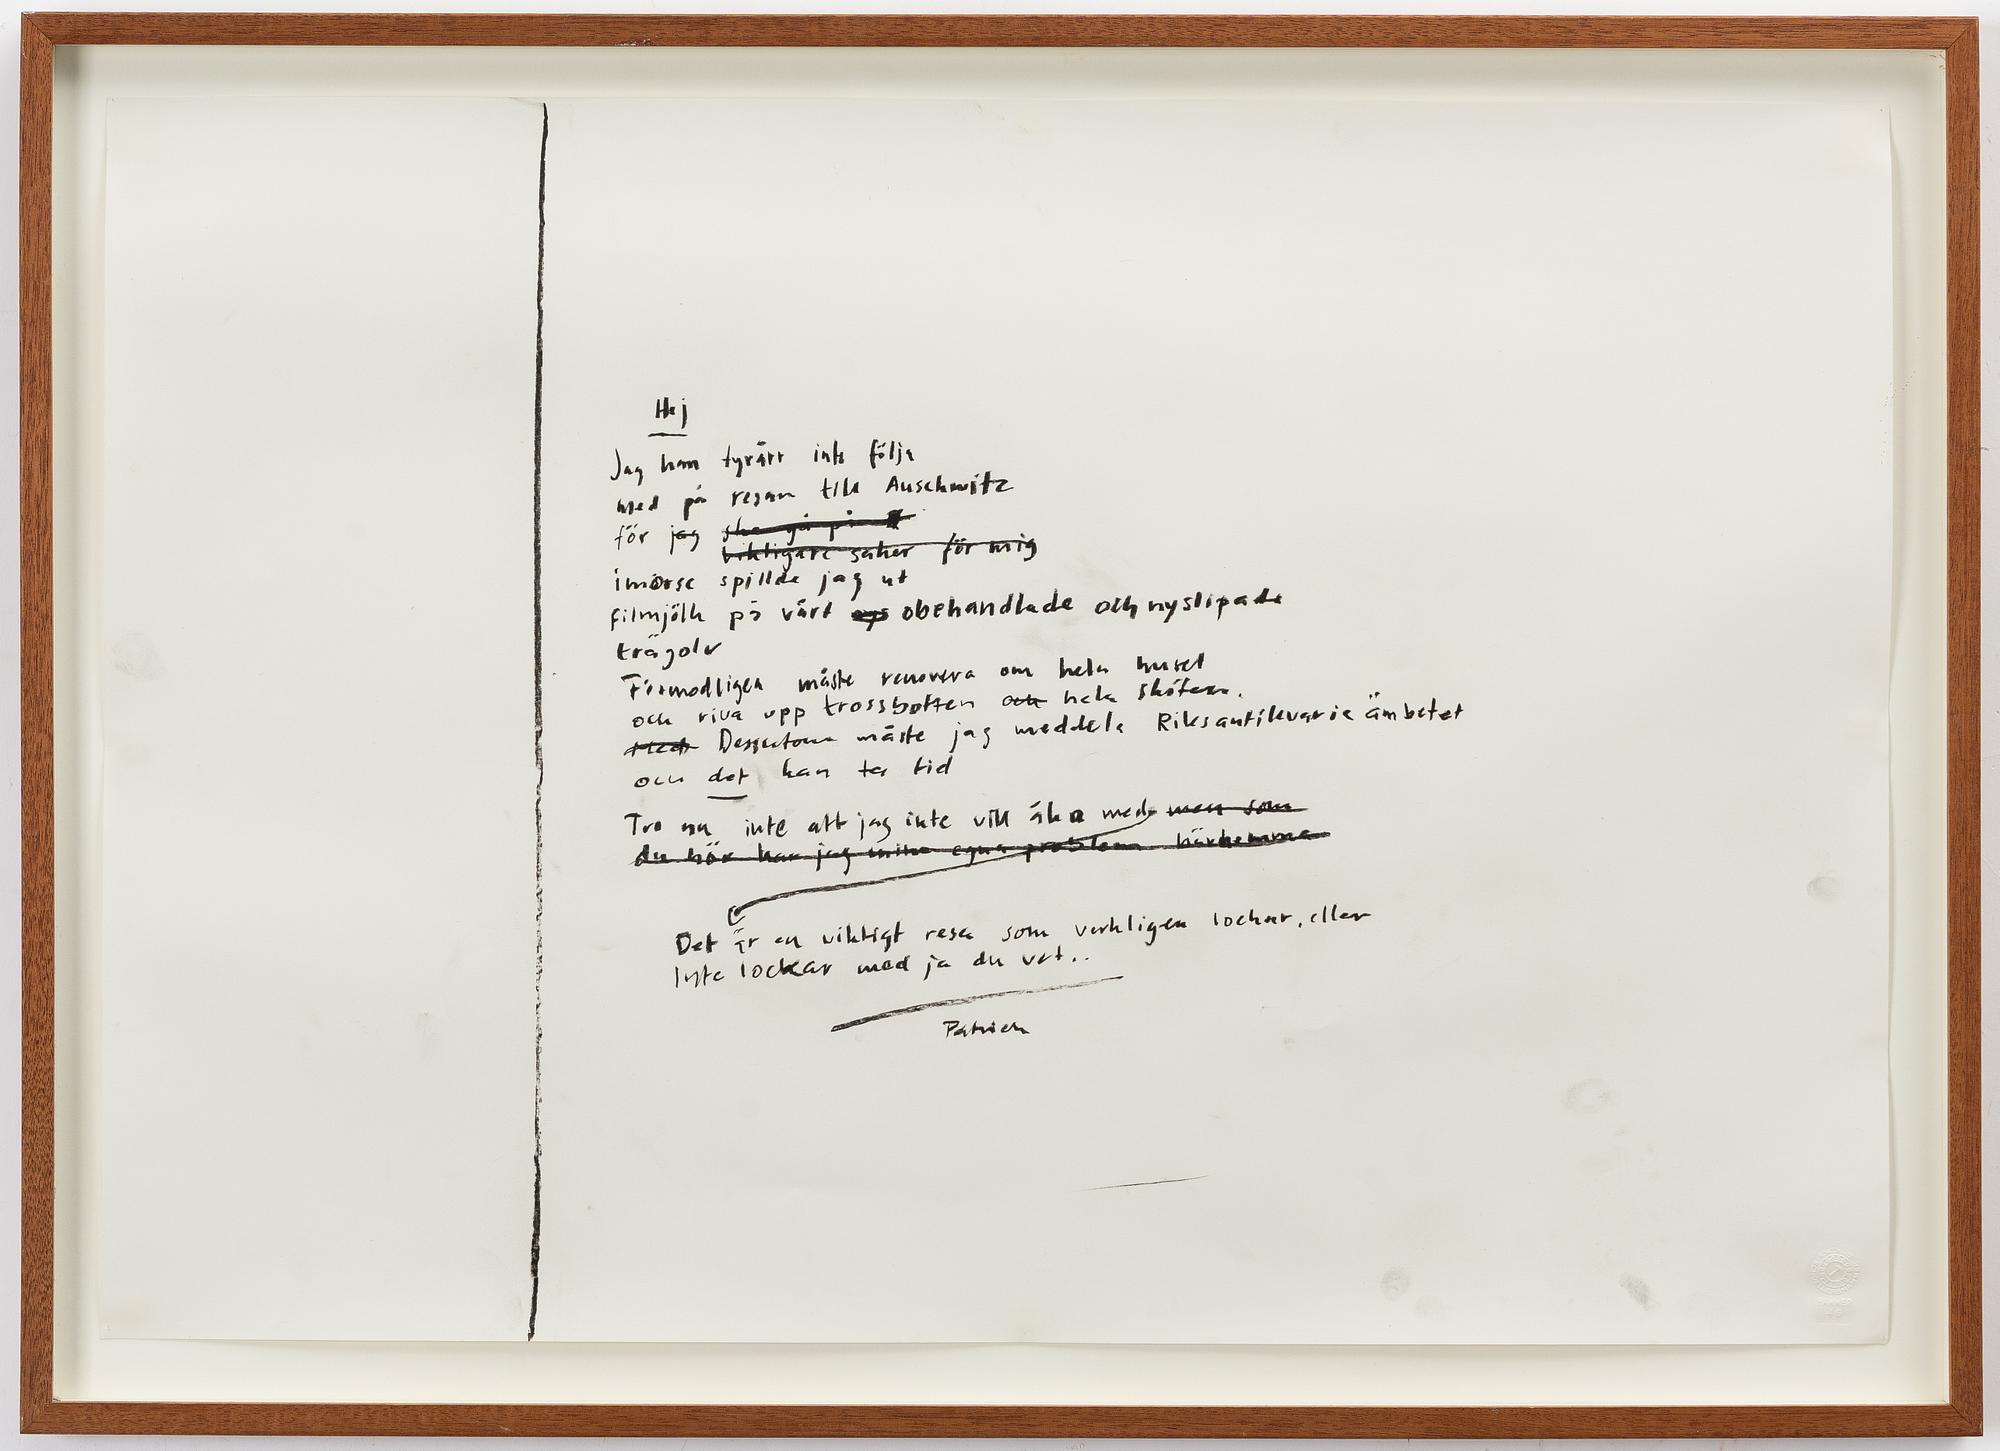 Hej
Jag kan tyvärr inte följa
med på resan till Auschwitz
för jag ska gå på
viktigare saker för mig
imorse spillde jag ut
filmjölk på vårt obehandlade och nyslipade
trägolv
Förmodligen måste renovera om hela huset
och riva upp trossbotten och hela sköten.
Dessutom måste jag meddela Riksantikvarie ämbetet
och det kan ta tid
Tro nu inte att jag inte vill åka med men som
du hör har jag mina egna problem härhemma
Det är en viktigt resa som verkligen lockar, eller
inte lockar med ja du vet..
Patrick